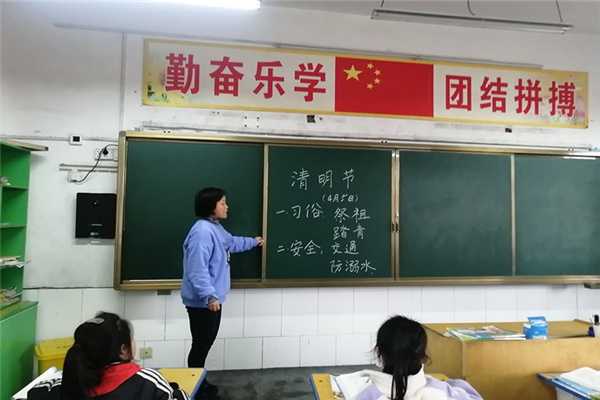 勤奋乐学 团结拼搏
清明节
(4月5日)
一.习俗 祭祖
踏青
二.安全: 交通
防溺水